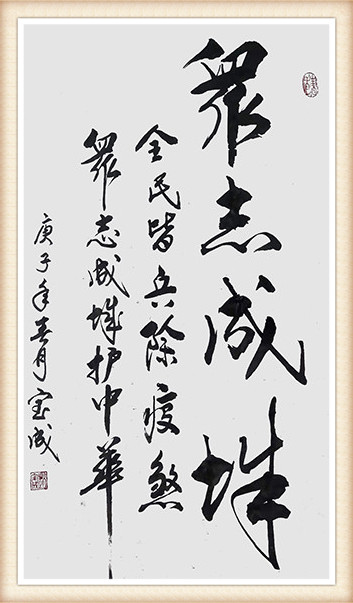 眾志成城
全民皆兵除疫煞
眾志成城护中華
庚子年春月宝成